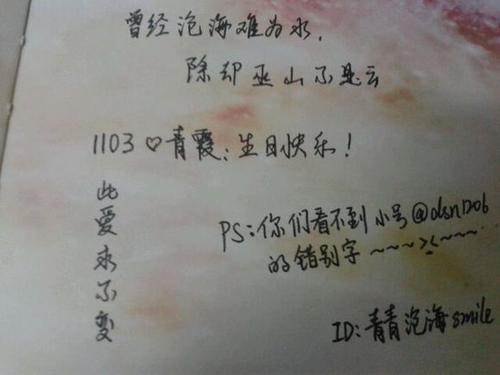 曾经沧海难为水，
除却巫山不是云
1103♡青霞：生日快乐！
此爱永不变
PS：你们看不到小号@dsn1206
的错别字~~~><~~~
ID：青青沧海smile